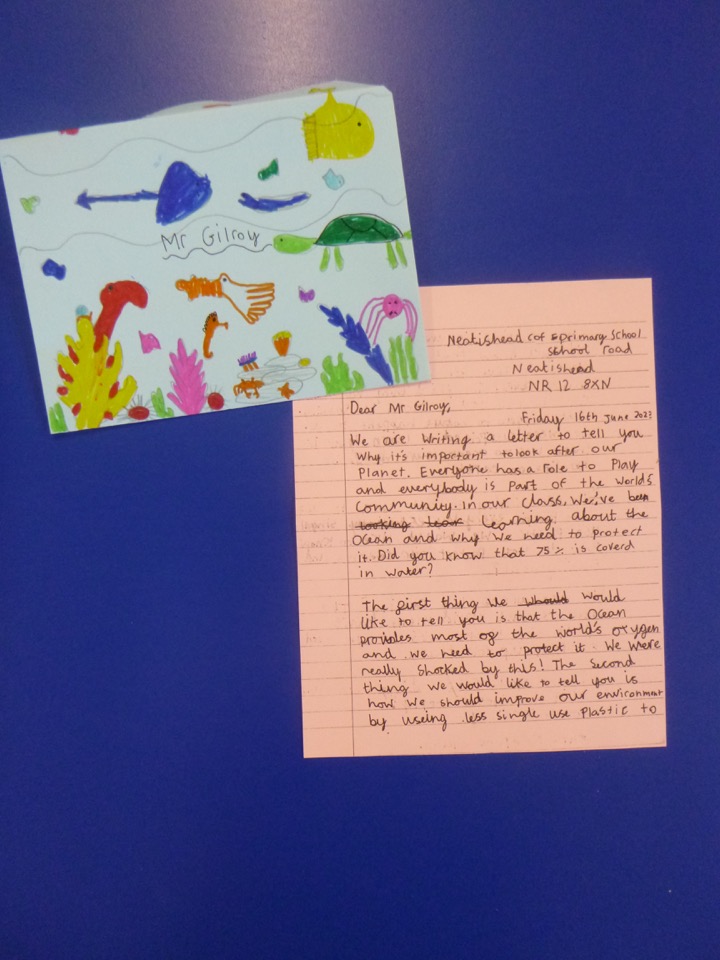 Mr Gilroy
Neatishead cof E primary School
School road
Neatishead
NR 12 8XN
Dear Mr Gilroy,
Friday 16th June 2023
We are writing a letter to tell you
why it's important to look after our
Planet. Everyone has a role to Play
and everybody is part of the world's
Community. In our class, We've been
looking lear Learning about the
Ocean and why we need to protect
it. Did you know that 75% is coverd
in water?
The first thing we whould would
like to tell you is that the Ocean
provides most of the world's oxygen
and we need to protect it. We were
really shocked by this! The second
thing we would like to tell you is
how we should improve our environment
by useing less single use Plastic to